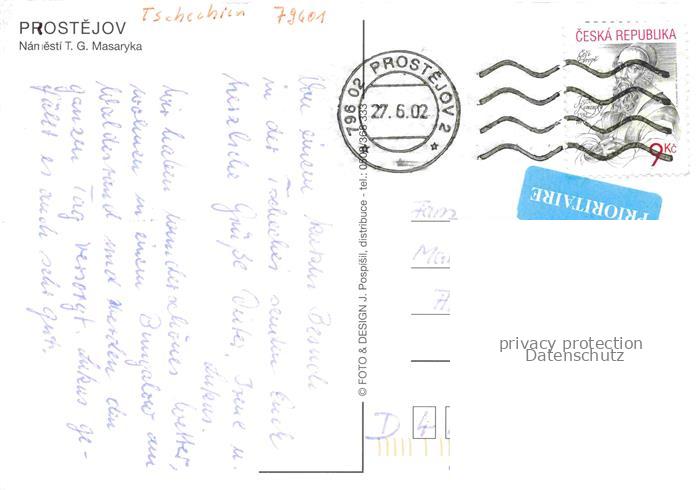 Tschechien 79401
PROSTĚJOV
Náměstí T. G. Masaryka
Von einem Besuch
in der Tschechei senden Euch
herzliche Grüße Dieter, Irene u.
Lukas.
Wir haben wunderschönes Wetter,
wohnen in einem Bungalow am
Waldesrand und werden den
ganzen Tag versorgt. Lukas ge-
fällt es auch sehr gut.
© FOTO & DESIGN J. Pospíšil, distribuce - tel.: 0508/366 333
796 02 PROSTĚJOV 2
27.6.02
ČESKÁ REPUBLIKA
9 Kč
PRIORITAIRE
Fam
D 4
privacy protection
Datenschutz